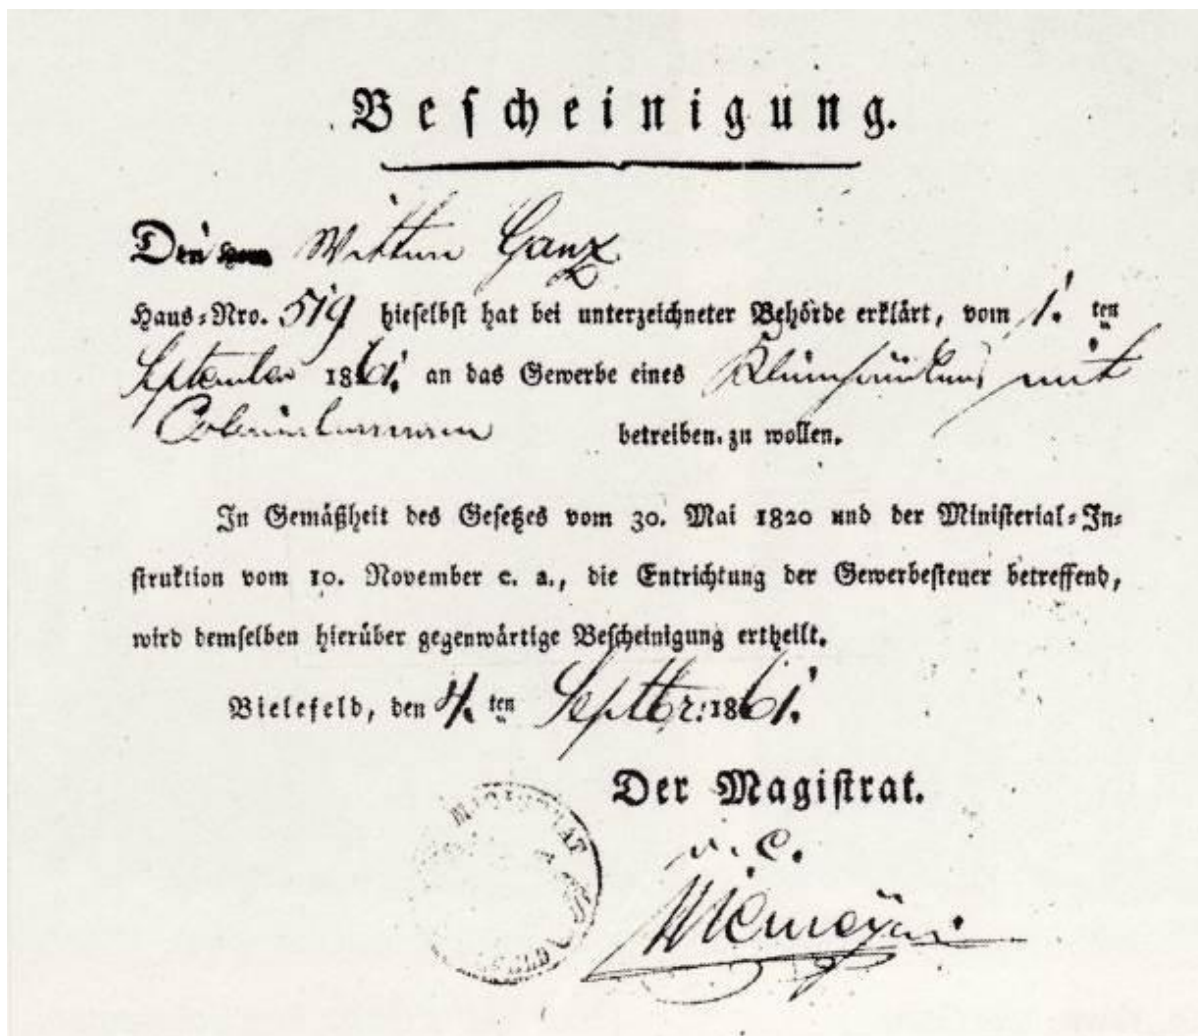 Bescheinigung.
Die Wittwe Ganz
Haus-Nro. 519 hieselbst hat bei unterzeichneter Behörde erklärt, vom 1. ten
September 1861. an das Gewerbe eines Kleinhändlers mit
Colonialwaaren betreiben zu wollen.
In Gemäßheit des Gesetzes vom 30. Mai 1820 und der Ministerial-In-
struktion vom 10. November c. a., die Entrichtung der Gewerbesteuer betreffend,
wird demselben hierüber gegenwärtige Bescheinigung ertheilt.
Bielefeld, den 4. ten Septbr: 1861.
Der Magistrat.
MAGISTRAT